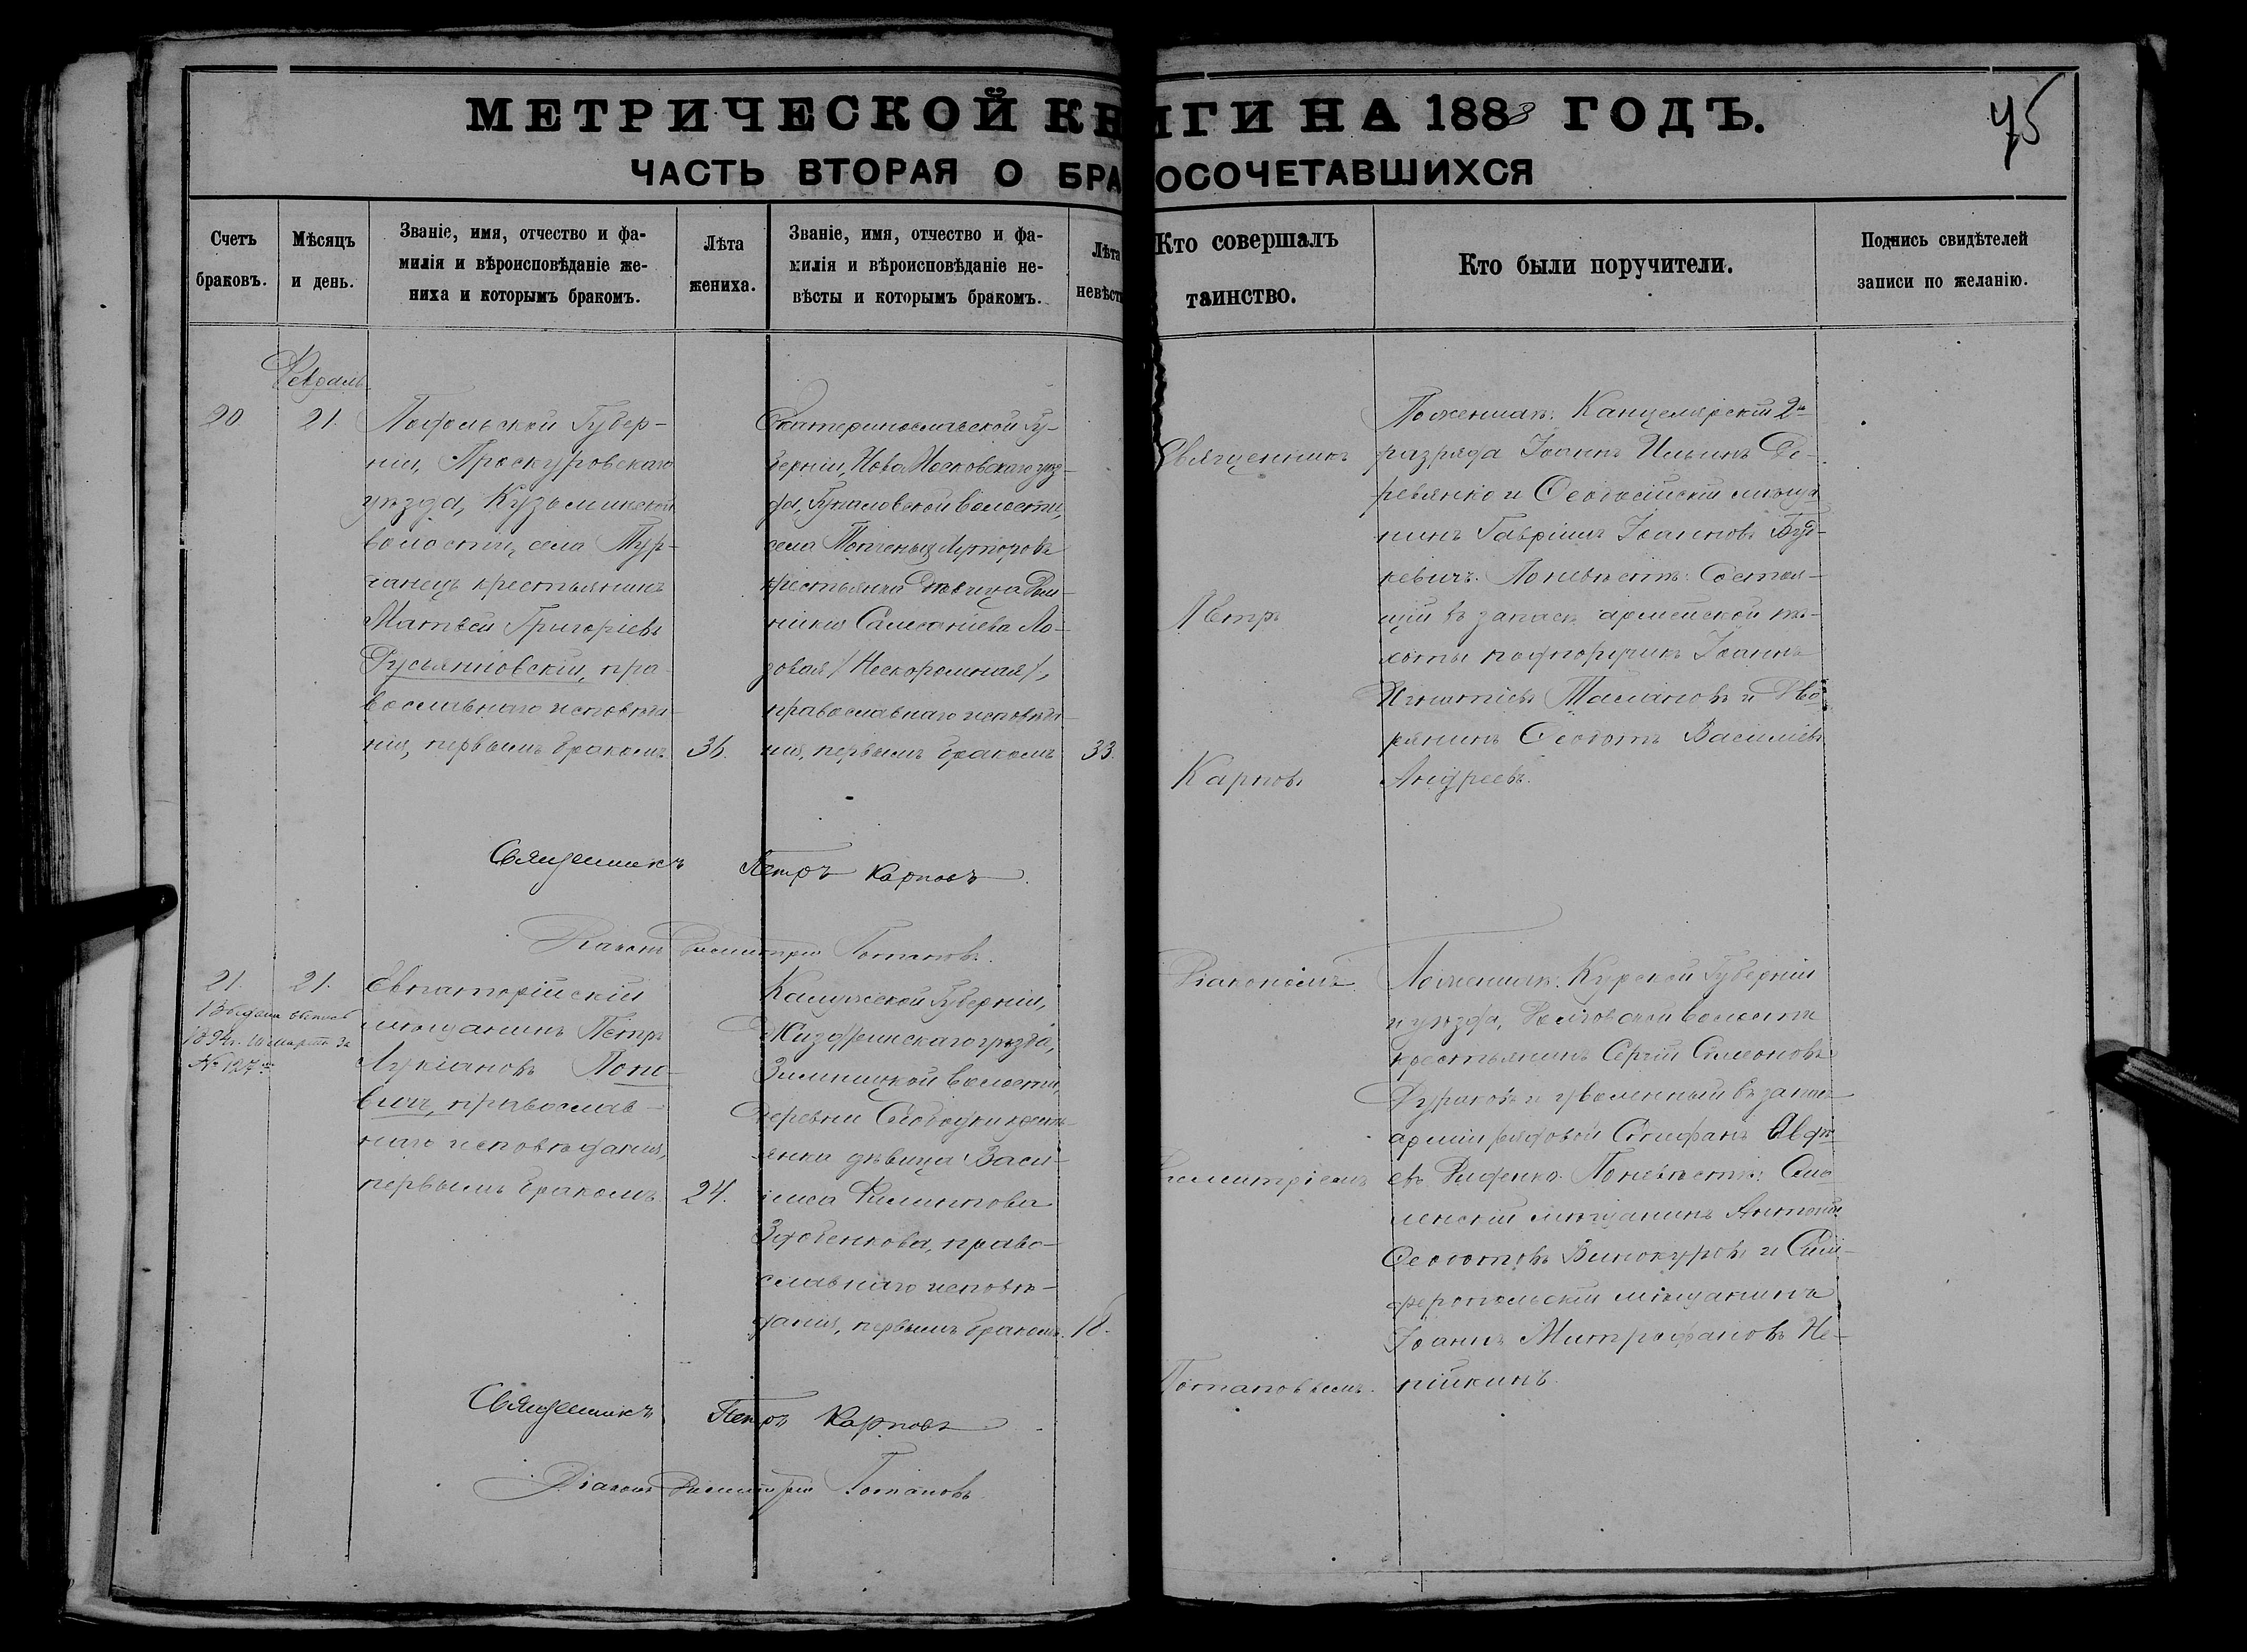 МЕТРИЧЕСКОЙ КНИГИ НА 1883 ГОДЪ.
75
ЧАСТЬ ВТОРАЯ О БРАКОСОЧЕТАВШИХСЯ
Счетъ
браковъ.
Мѣсяцъ
и день.
Званіе, имя, отчество и фа-
милія и вѣроисповѣданіе же-
ниха и которымъ бракомъ.
Лѣта
жениха.
Званіе, имя, отчество и фа-
милія и вѣроисповѣданіе не-
вѣсты и которымъ бракомъ.
Лѣта
невѣсты
Кто совершалъ
таинство.
Кто были поручители.
Подпись свидѣтелей
записи по желанію.
Февраль
20
21.
Подольской Губер-
ніи, Проскуровскаго
уѣзда, Кузьминской
волости, села Тур-
чанецъ крестьянинъ
Матѳей Григоріевъ
пра-
вославнаго исповѣда-
нія, первымъ бракомъ.
36.
Екатеринославской Гу-
берніи, Ново Московскаго уѣз-
да, волости,
села
крестьянка дѣвица Дом-
никія Ло-
зовая /Нескоромная/,
православнаго исповѣда-
нія, первымъ бракомъ
33.
Священникъ
Петръ
Карповъ
По женихѣ: Канцелярскій 2го
разряда Іоаннъ Ильинъ Де-
ревянко и Ѳеодосійскій мѣща-
нинъ Гавріилъ Іоанновъ Буд-
кевичъ. По невѣстѣ: Состоя-
щій въ запасѣ армейской пѣ-
хоты подпоручикъ Іоаннъ
Игнатіевъ Талановъ и Дво-
рянинъ Ѳеодотъ Василіевъ
Андреевъ.
Священникъ Петръ Карповъ.
Діаконъ Димитрій Потаповъ.
21.
21.
Выдана выпись
1894г. 10 марта за
№ 127
Евпаторійскій
мѣщанинъ Петръ
Лукіановъ Попо-
вичъ, православ-
наго исповѣданія,
первымъ бракомъ.
24.
Калужской Губерніи,
Жиздринскаго уѣзда,
Зимницкой волости,
деревни Слободки крестья-
янка дѣвица Васи-
лиса Филиппова
Здобенкова, право-
славнаго исповѣ-
данія, первымъ бракомъ.
18.
Діакономъ
Димитріемъ
Потаповымъ.
По женихѣ: Курской Губерніи
и уѣзда, волости
крестьянинъ Сергій Симеоновъ
Дураковъ и уволенный въ запасъ
арміи рядовой Стефанъ Авдѣ-
евъ Диденко. По невѣстѣ: Смо-
ленскій мѣщанинъ Антоній
Ѳеодотовъ Винокуровъ и Сим-
феропольскій мѣщанинъ
Іоаннъ Митрофановъ Не-
пійкинъ.
Священникъ Петръ Карповъ
Діаконъ Димитрій Потаповъ